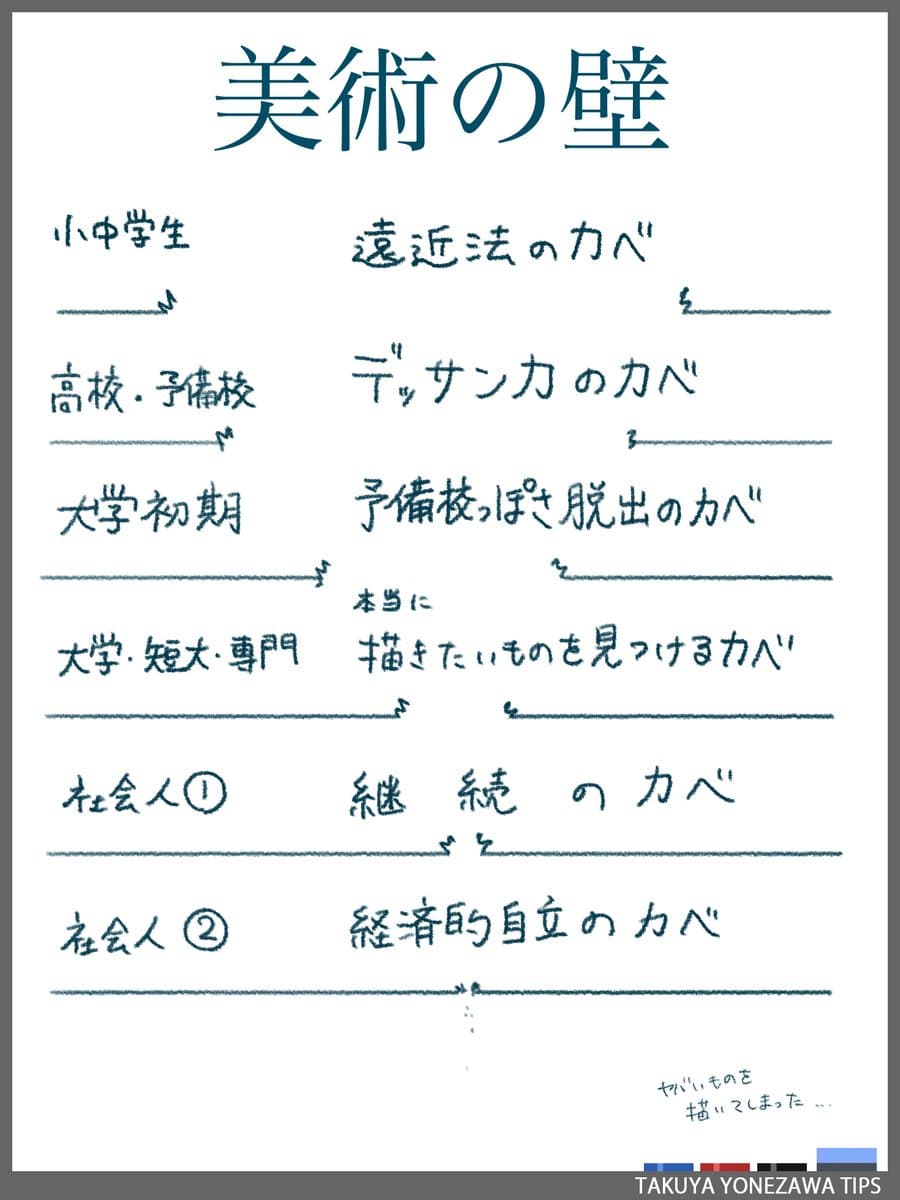 美術の壁
小中学生
遠近法のカベ
高校・予備校
デッサン力のカベ
大学初期
予備校っぽさ脱出のカベ
大学・短大・専門
本当に
描きたいものを見つけるカベ
社会人①
継続のカベ
社会人②
経済的自立のカベ
ヤバいものを
描いてしまった…
TAKUYA YONEZAWA TIPS